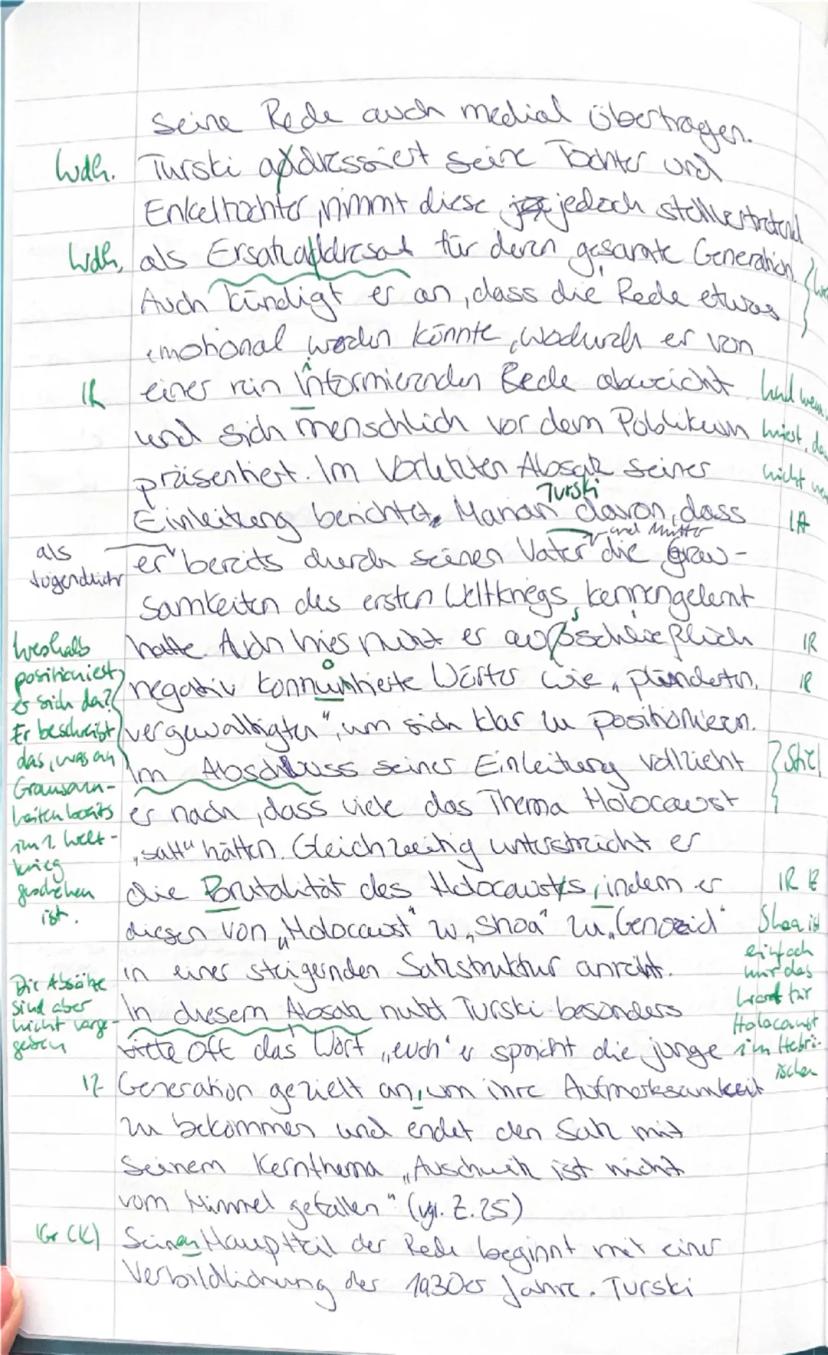 seine Rede auch medial übertragen.
Wdh. Turski addressiert seine Tochter und
Enkeltochter, nimmt diese jedoch stellvertretend
Wdh. als Ersatzaddresat für deren gesamte Generation.
Auch kündigt er an, dass die Rede etwas
emotional werden könnte, wodurch er von
IR einer rein informierenden Rede abweicht
und sich menschlich vor dem Publikum
präsentiert. Im vorletzten Absatz seiner
Turski
Einleitung berichtet Marian davon, dass IA
als Jugendlicher
und Mutter
er bereits durch seinen Vater die Grau-
samkeiten des ersten Weltkriegs kennengelernt
hatte. Auch hier nutzt er außschließlich IR
negativ konnuntierte Wörter wie „plünderten, IR
vergewaltigten", um sich klar zu positionieren.
Weshalb
positioniert
er sich da?
Er beschreibt
das, was an
Grausam-
keiten bereits
im 1. Welt-
krieg
geschehen
ist.
Im Abschluss seiner Einleitung vollzieht Stil
er nach, dass viele das Thema Holocaust
„satt" hätten. Gleichzeitig unterstreicht er
die Brutalität des Holocausts, indem er IR
diesen von „Holocaust" zu „Shoa" zu „Genozid"
in einer steigernden Satzstruktur anreiht.
Shoa ist
einfach
nur das
Wort für
Holocaust
im Hebrä-
ischen
Die Absätze
sind aber
nicht vorge-
geben
In diesem Absatz nutzt Turski besonders
oft das Wort „euch" er spricht die junge
IZ Generation gezielt an, um ihre Aufmerksamkeit
zu bekommen und endet den Satz mit
seinem Kernthema „Auschwitz ist nicht
vom Himmel gefallen" (vgl. Z. 25)
Gr (K) Seinen Hauptteil der Rede beginnt mit einer
Verbildlichung der 1930er Jahre. Turski